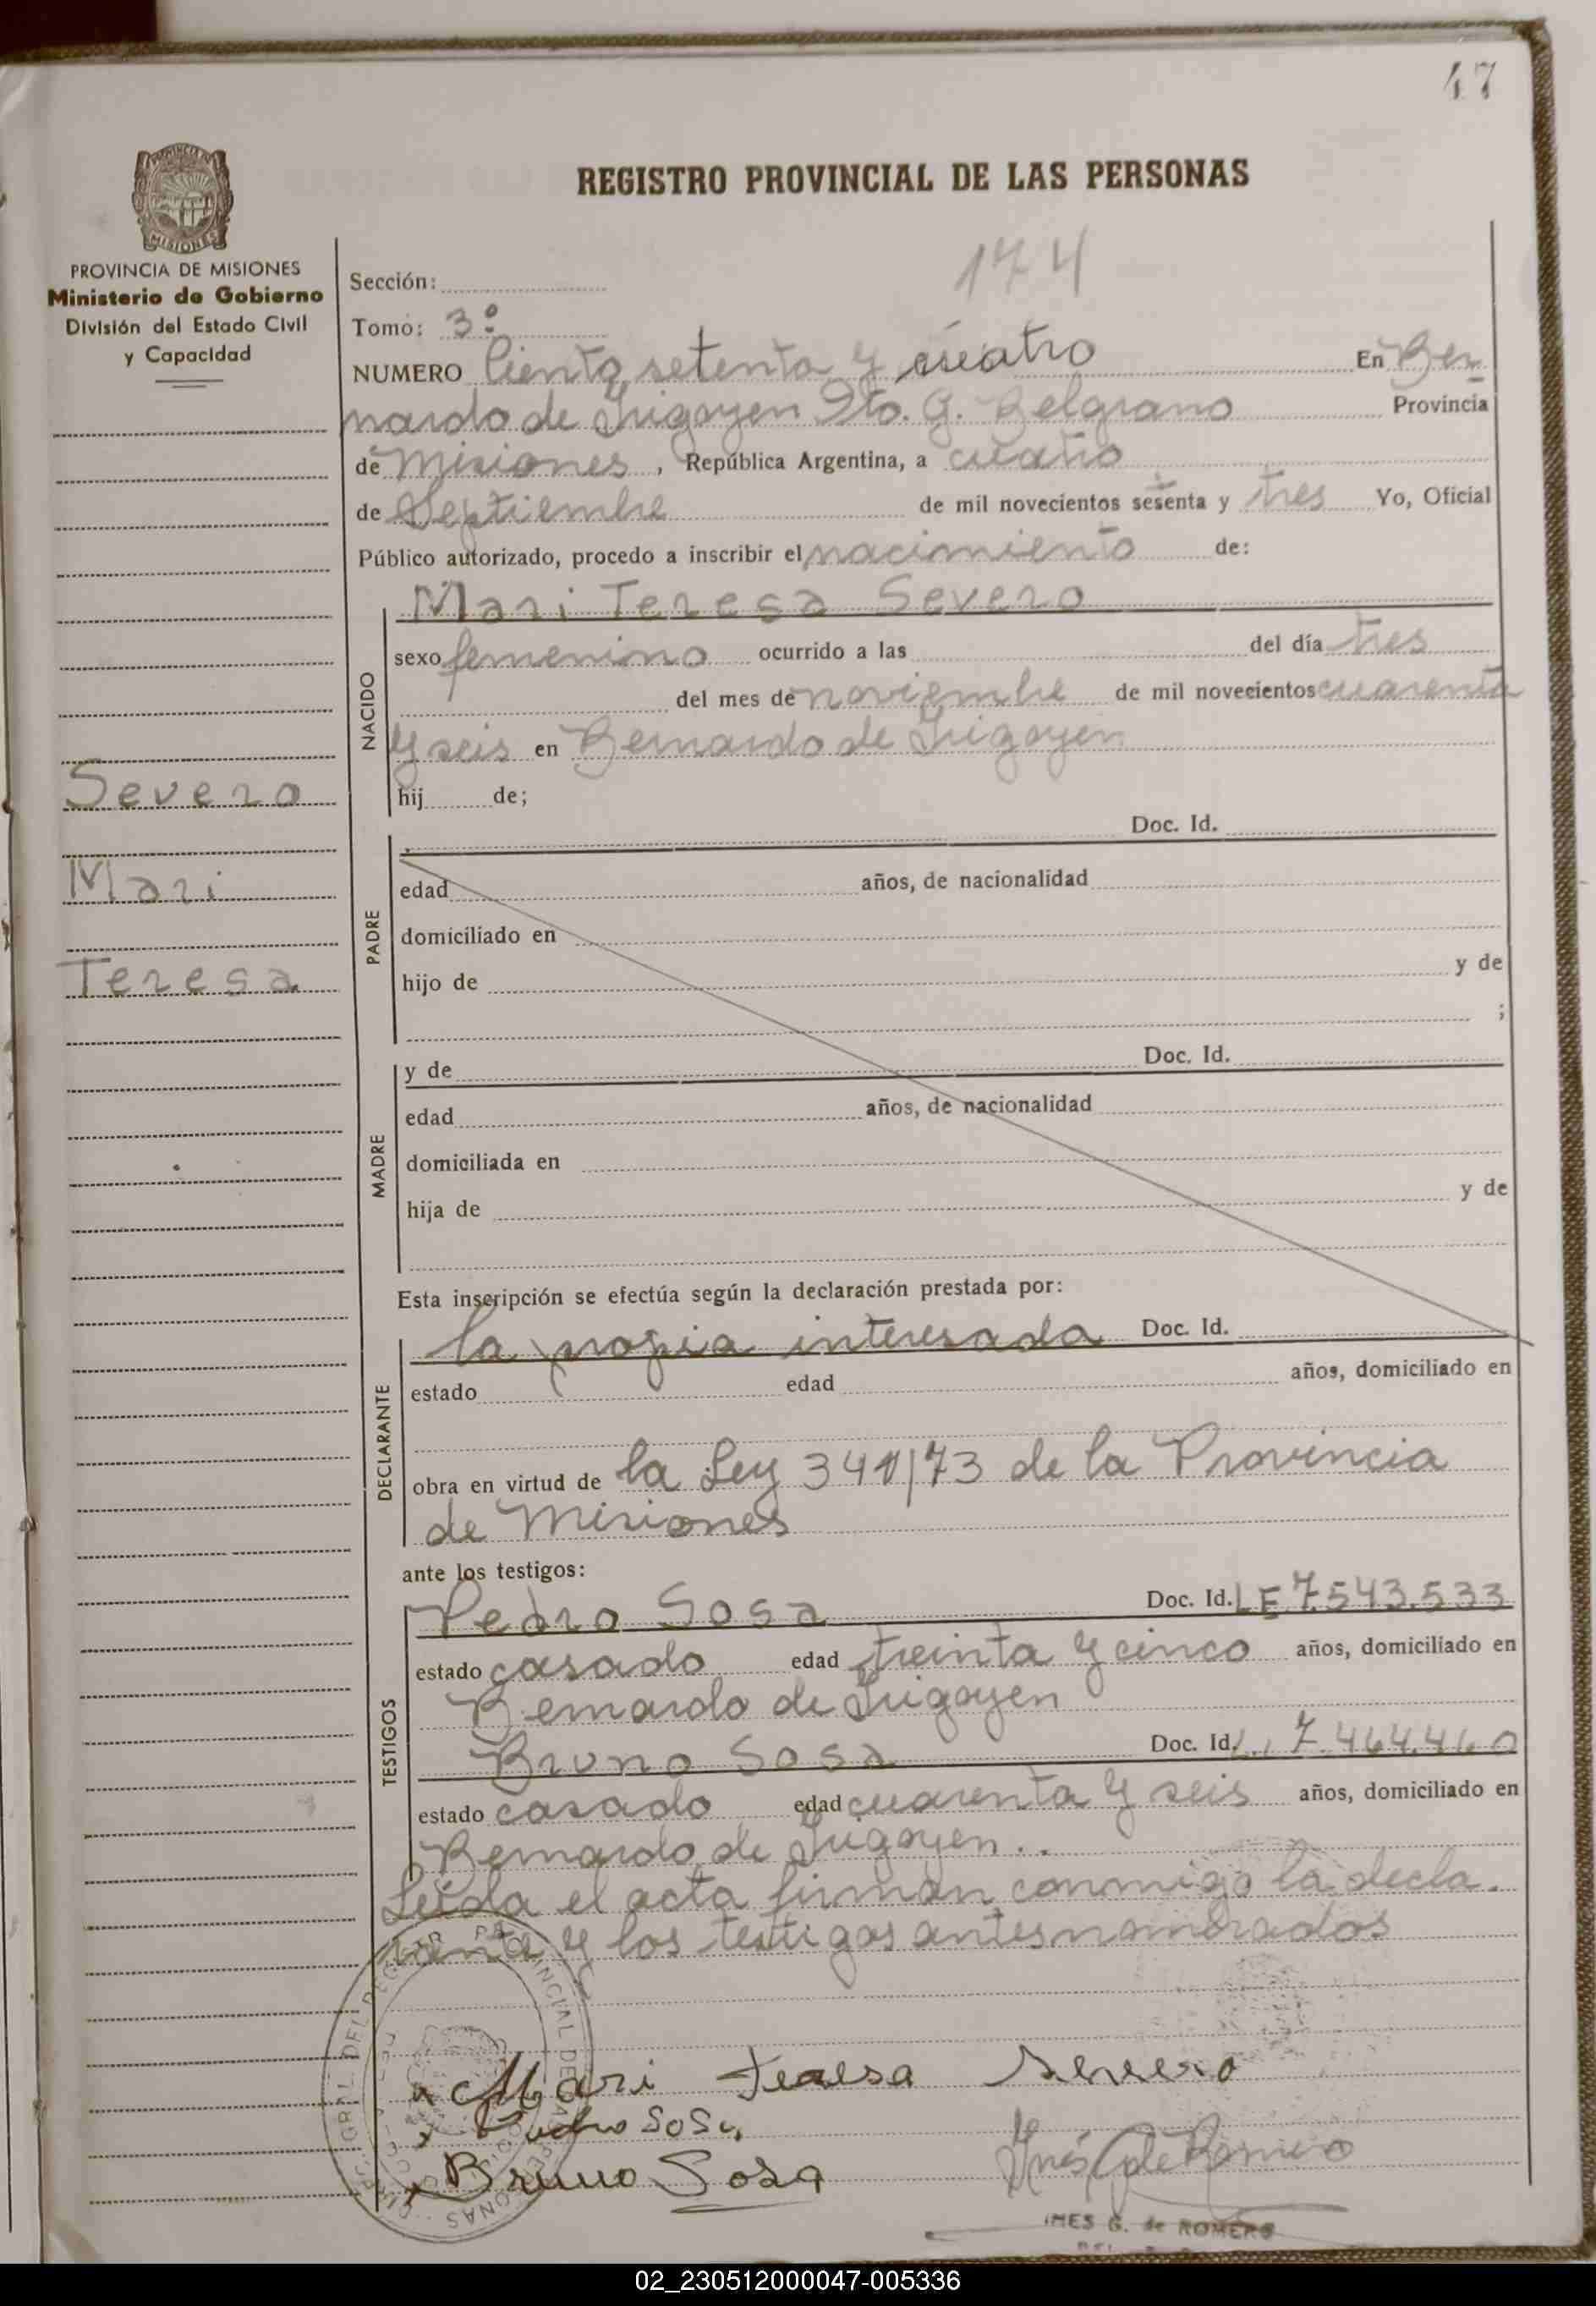 47
REGISTRO PROVINCIAL DE LAS PERSONAS
PROVINCIA DE MISIONES
Ministerio de Gobierno
División del Estado Civil
y Capacidad
Severo
Mari
Teresa
174
Sección:
Tomo: 3º
NUMERO Ciento setenta y cuatro En Ber
nardo de Irigoyen Dto. G. Belgrano Provincia
de Misiones, República Argentina, a cuatro
de Septiembre de mil novecientos sesenta y tres Yo, Oficial
Público autorizado, procedo a inscribir el nacimiento de:
NACIDO
Mari Teresa Severo
sexo femenino ocurrido a las del día tres
del mes de noviembre de mil novecientos cuarenta
y seis en Bernardo de Irigoyen
hij de;
PADRE
Doc. Id.
edad años, de nacionalidad
domiciliado en
hijo de y de
;
MADRE
y de Doc. Id.
edad años, de nacionalidad
domiciliada en
hija de y de
Esta inscripción se efectúa según la declaración prestada por:
DECLARANTE
la propia interesada Doc. Id.
estado edad años, domiciliado en
obra en virtud de la Ley 341/73 de la Provincia
de Misiones
ante los testigos:
TESTIGOS
Pedro Sosa Doc. Id. LE 7.543.533
estado casado edad treinta y cinco años, domiciliado en
Bernardo de Irigoyen
Bruno Sosa Doc. Id. 7.464.460
estado casado edad cuarenta y seis años, domiciliado en
Bernardo de Irigoyen..
Leída el acta firman conmigo la decla.
rante y los testigos antes nombrados
Mari Teresa Severo
Pedro Sosa
Bruno Sosa
Inés G de Romero
INES G. de ROMERO
02_230512000047-005336